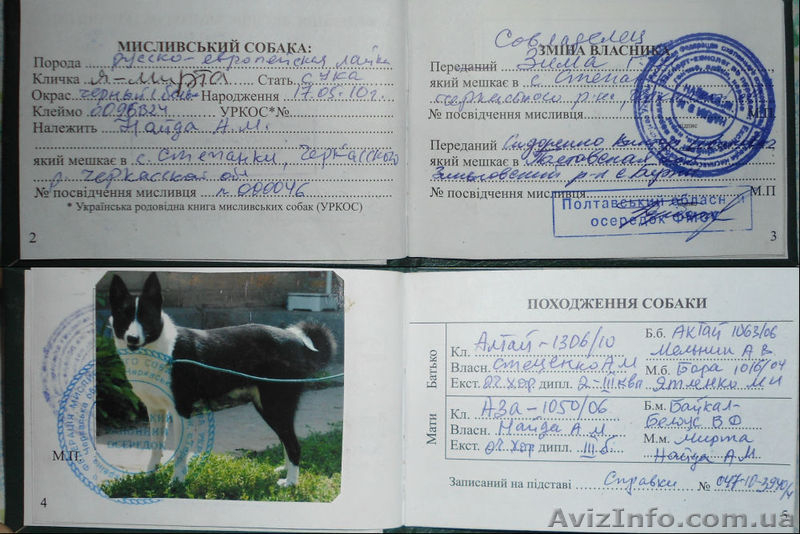 МИСЛИВСЬКИЙ СОБАКА:
Порода русско-европейская лайка
Кличка Я-Мирта Стать сука
Окрас черный/бел Народження 17.05.10г.
Клеймо УРКОС*№
Належить Найда А.М.
який мешкає в с. Степанки, Черкасского
р. Черкасской обл
№ посвідчення мисливця 000046
* Українська родовідна книга мисливських собак (УРКОС)
2
Совладелец
ЗМІНА ВЛАСНИКА
Переданий Зима
який мешкає в с. Степан
Черкасского р-н,
№ посвідчення мисливця М.П.
Переданий Сидоренко
який мешкає в Полтавская
р-н с.
№ посвідчення мисливця М.П
Полтавський обласний
осередок ФМСУ
3
М.П.
РАЙОННИЙ
ОСЕРЕДОК
4
ПОХОДЖЕННЯ СОБАКИ
Батько
Кл. Алтай-1306/10
Власн. Стеценко А М
Екст. оч. хор дипл. 2-III кв.
Б.б. Актай 1063/06
Мельник А В
М.б. Бара 1016/04
Ятленко М И
Мати
Кл. Аза-1050/06
Власн. Найда А М
Екст. оч. хор дипл. III б.
Б.м. Байкал-
Белоус В Ф
М.м. Мирта
Найда А.М
Записаний на підставі Справки № 047-10-
5
AvizInfo.com.ua